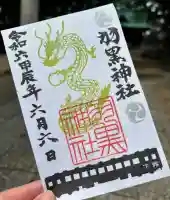 羽黒神社
令和六甲辰年六月六日
羽黒
神社